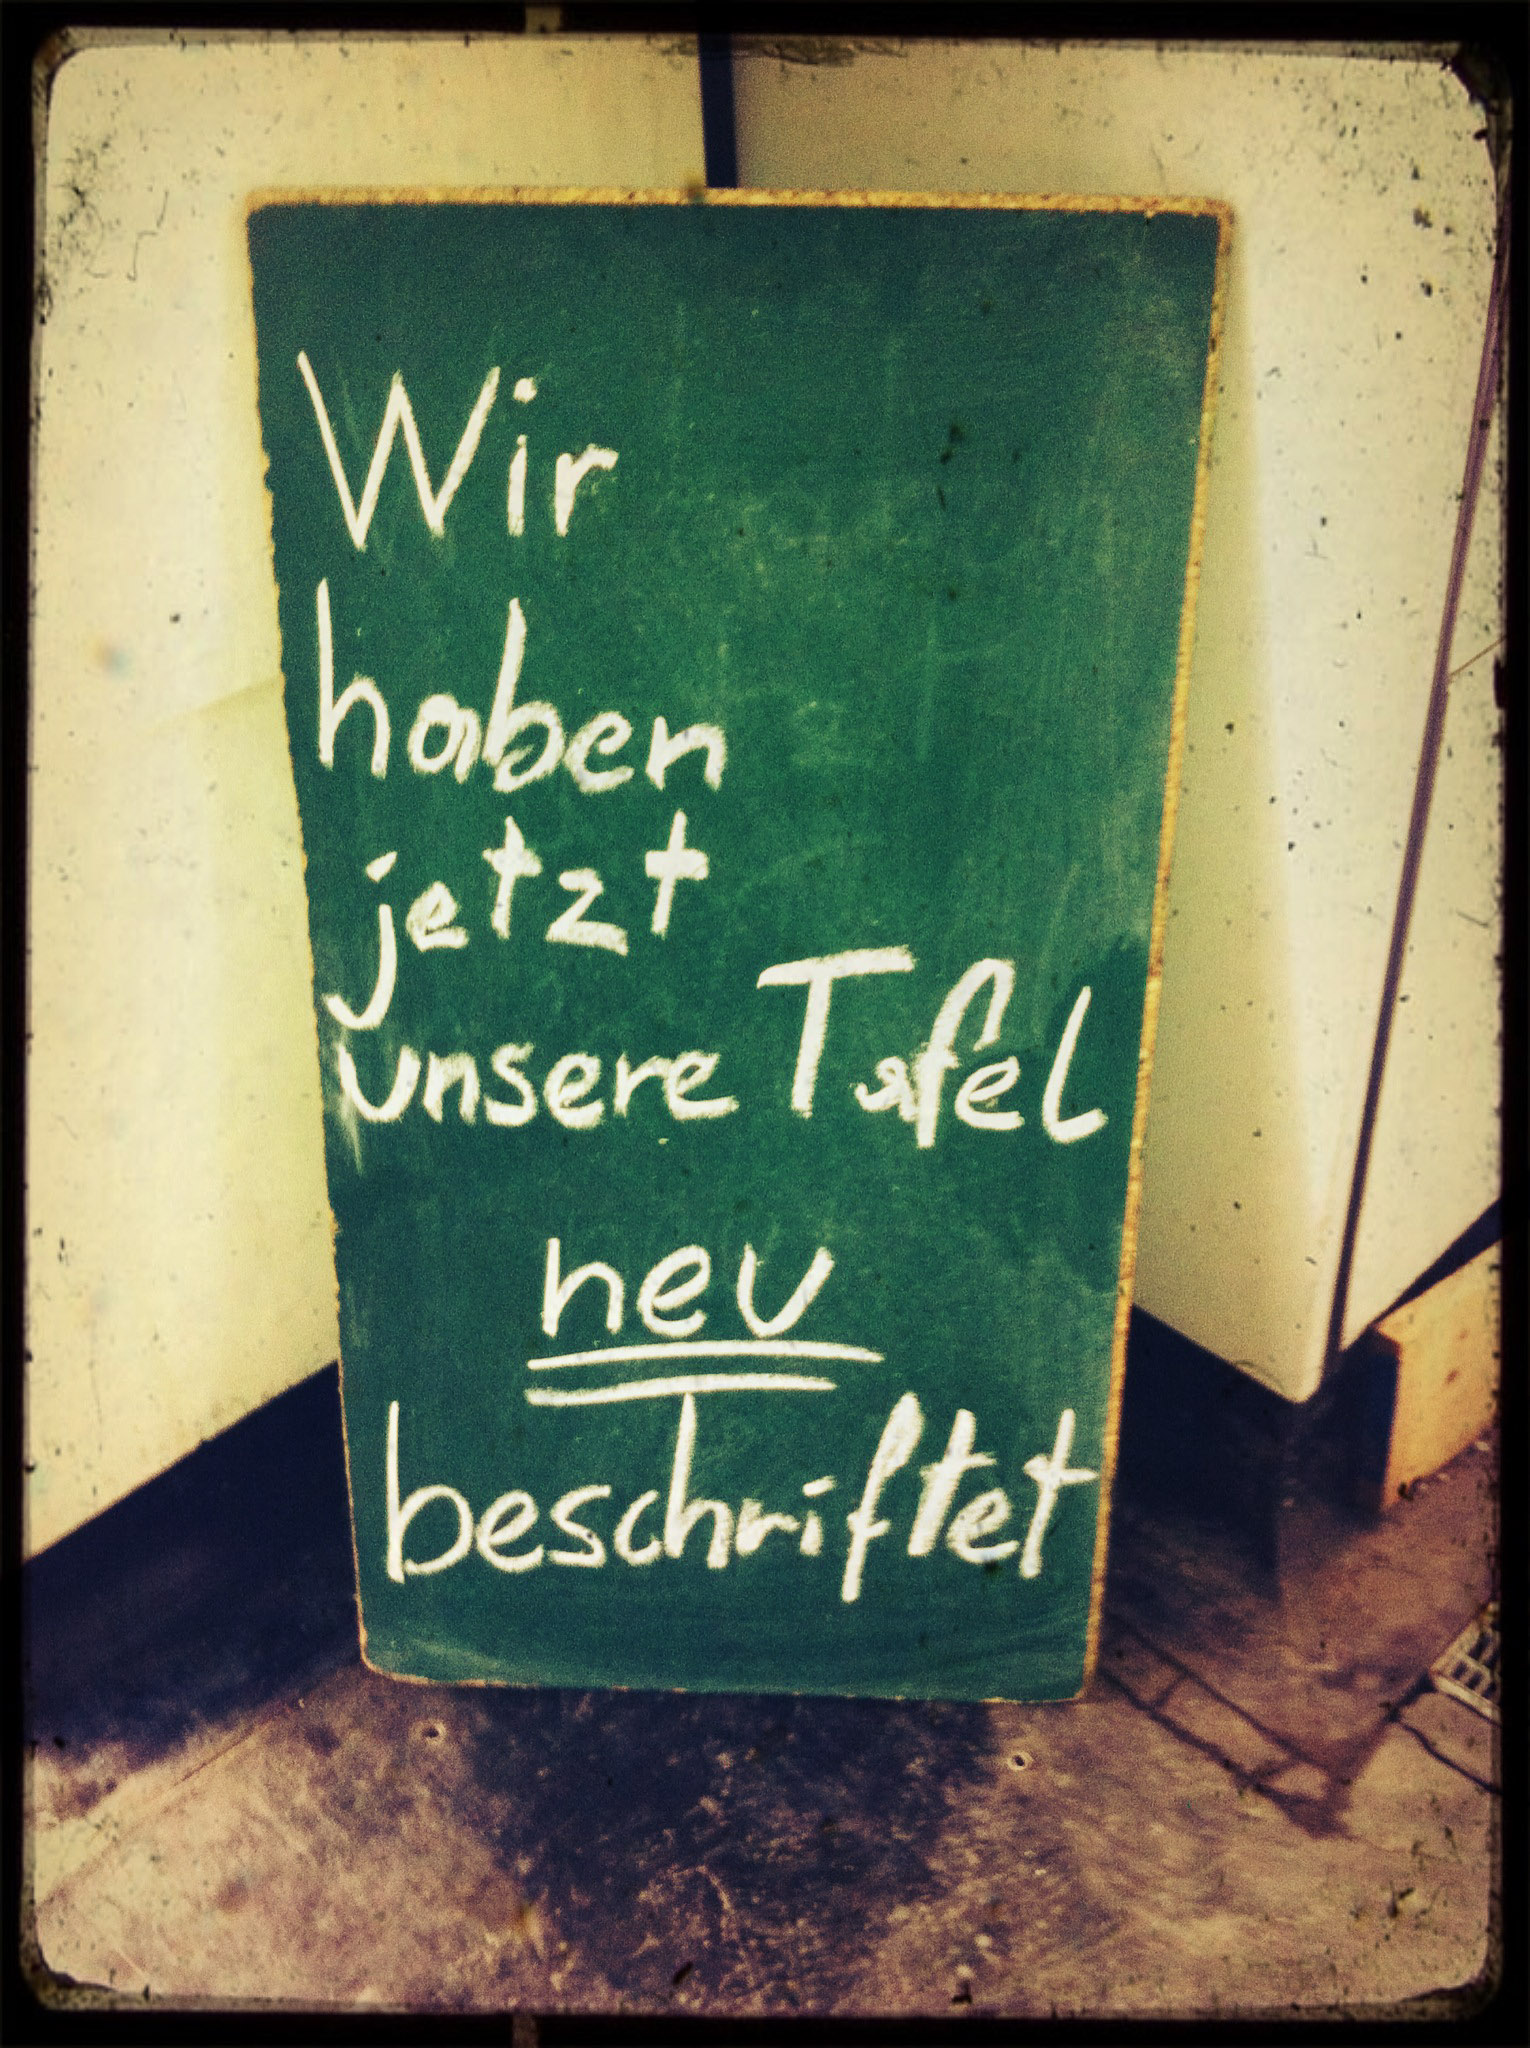 Wir
haben
jetzt
unsere Tafel
neu
beschriftet